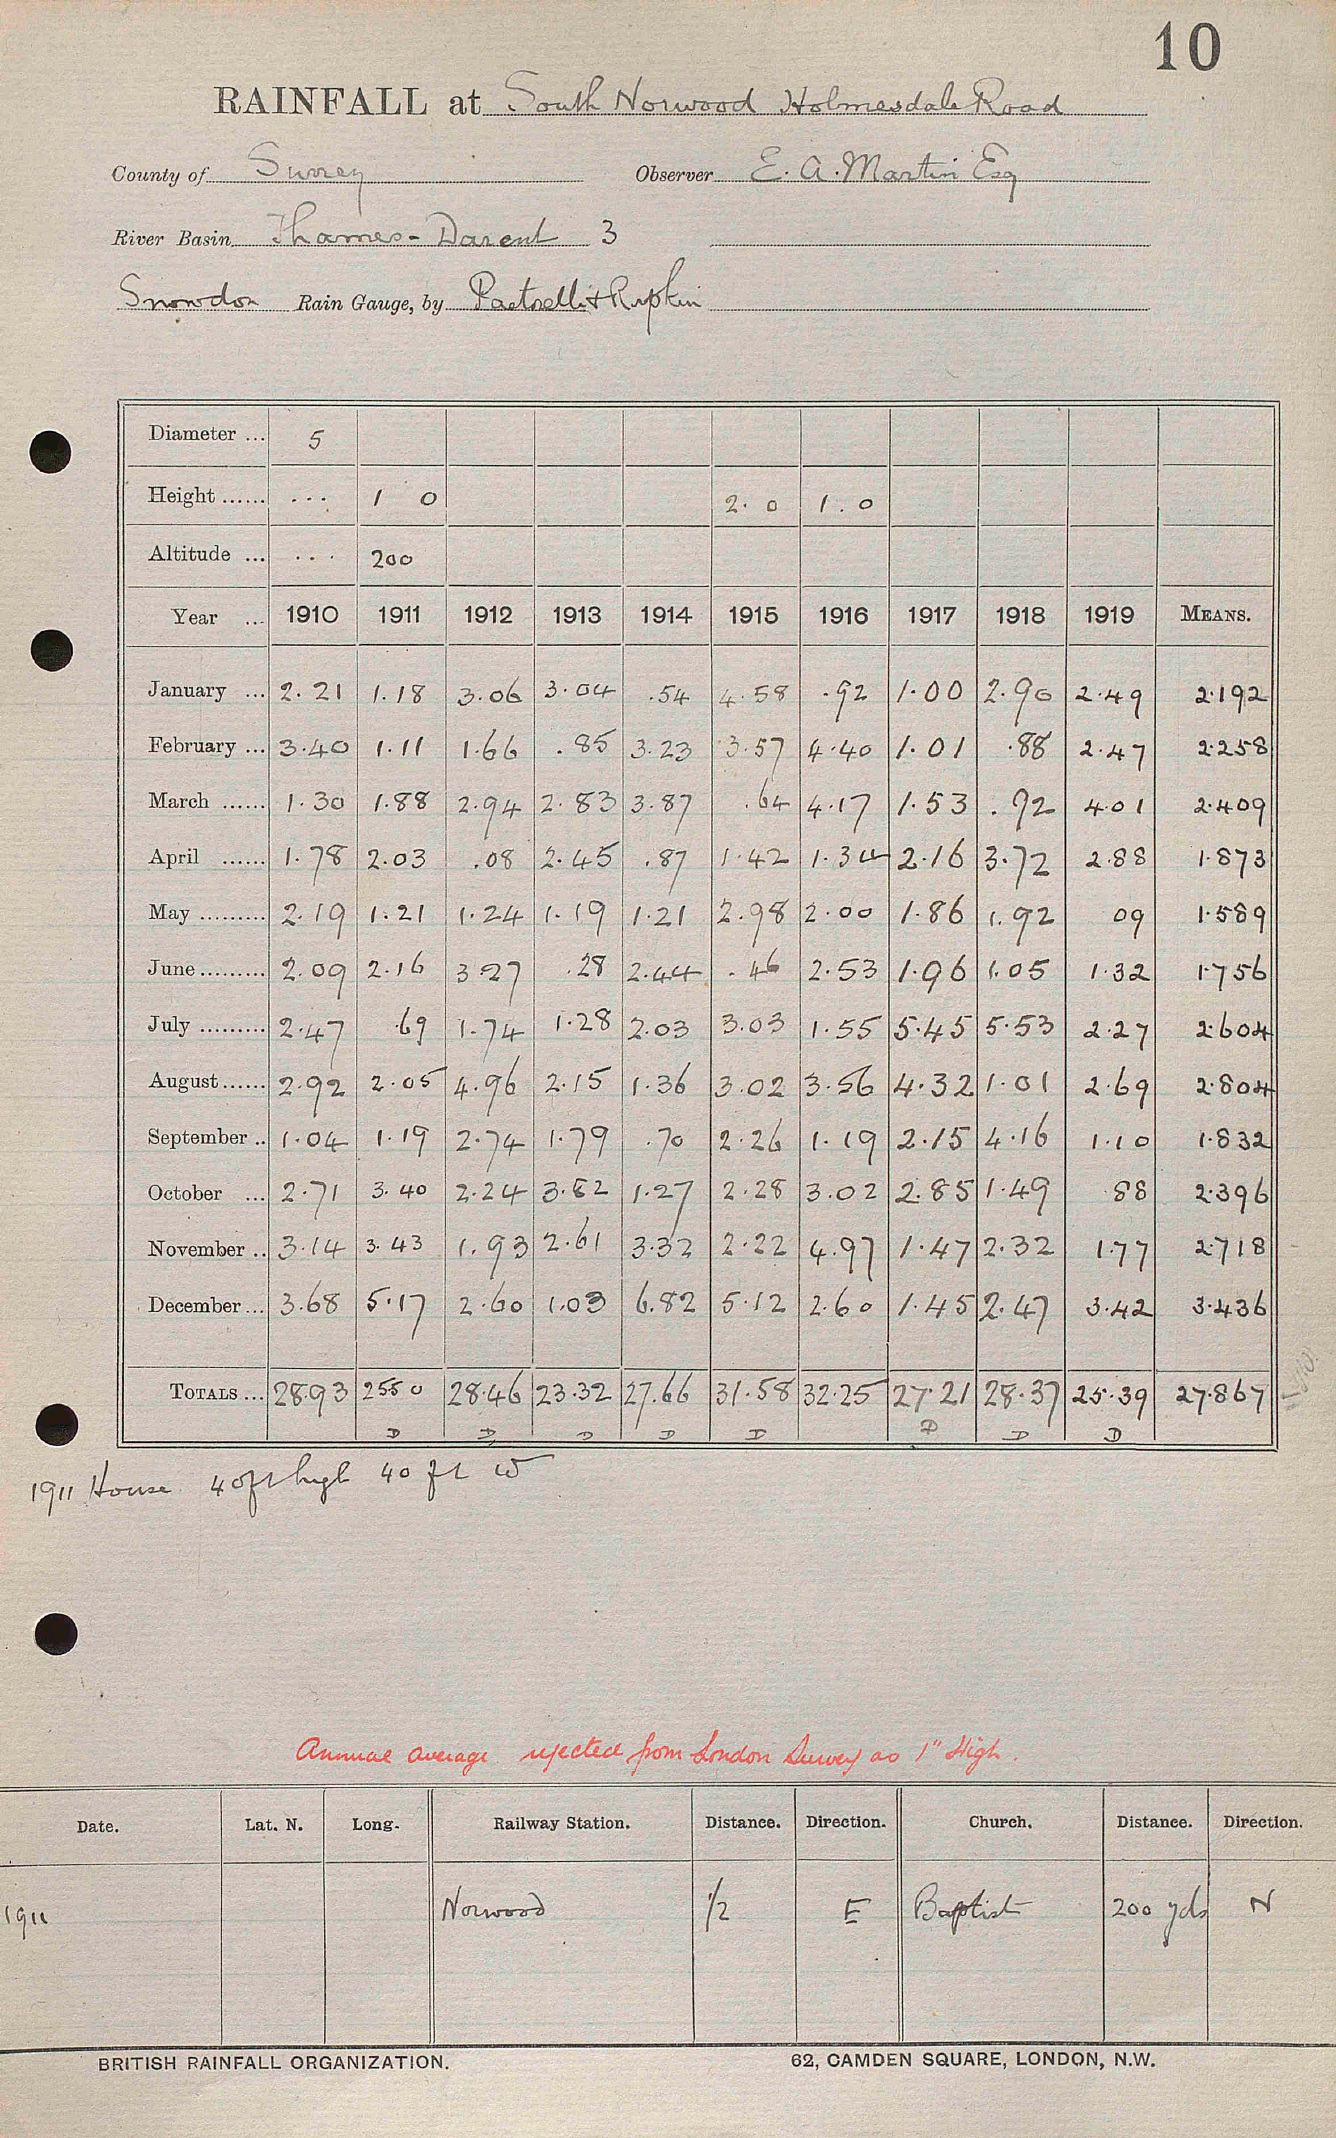 10
RAINFALL at South Norwood Holmesdale Road
County of Surrey Observer E. A. Martin Esq
River Basin Thames - Darent 3
Snowdon Rain Gauge, by Pastorelli & Rapkin
Diameter ... 5
Height ...... ... 1 0 2. 0 1. 0
Altitude ... ... 200
Year ... 1910 1911 1912 1913 1914 1915 1916 1917 1918 1919 MEANS.
January ... 2.21 1.18 3.06 3.04 .54 4.58 .92 1.00 2.90 2.49 2.192
February ... 3.40 1.11 1.66 .85 3.23 3.57 4.40 1.01 .88 2.47 2.258
March ...... 1.30 1.88 2.94 2.83 3.87 .64 4.17 1.53 .92 4.01 2.409
April ...... 1.78 2.03 .08 2.45 .87 1.42 1.34 2.16 3.72 2.88 1.873
May ......... 2.19 1.21 1.24 1.19 1.21 2.98 2.00 1.86 1.92 09 1.589
June ......... 2.09 2.16 3.27 .28 2.44 .46 2.53 1.96 1.05 1.32 1.756
July ......... 2.47 .69 1.74 1.28 2.03 3.03 1.55 5.45 5.53 2.27 2.604
August ...... 2.92 2.05 4.96 2.15 1.36 3.02 3.56 4.32 1.01 2.69 2.804
September .. 1.04 1.19 2.74 1.79 .70 2.26 1.19 2.15 4.16 1.10 1.832
October ... 2.71 3.40 2.24 3.82 1.27 2.28 3.02 2.85 1.49 .88 2.396
November .. 3.14 3.43 1.93 2.61 3.32 2.22 4.97 1.47 2.32 1.77 2.718
December ... 3.68 5.17 2.60 1.03 6.82 5.12 2.60 1.45 2.47 3.42 3.436
TOTALS ... 28.93 25.50 28.46 23.32 27.66 31.58 32.25 27.21 28.37 25.39 27.867
D D D D D D D D
1911 House 40ft high 40 ft W
Annual average rejected from London Survey as 1" High.
Date. Lat. N. Long. Railway Station. Distance. Direction. Church. Distance. Direction.
1911 Norwood 1/2 E Baptist 200 yds N
BRITISH RAINFALL ORGANIZATION. 62, CAMDEN SQUARE, LONDON, N.W.